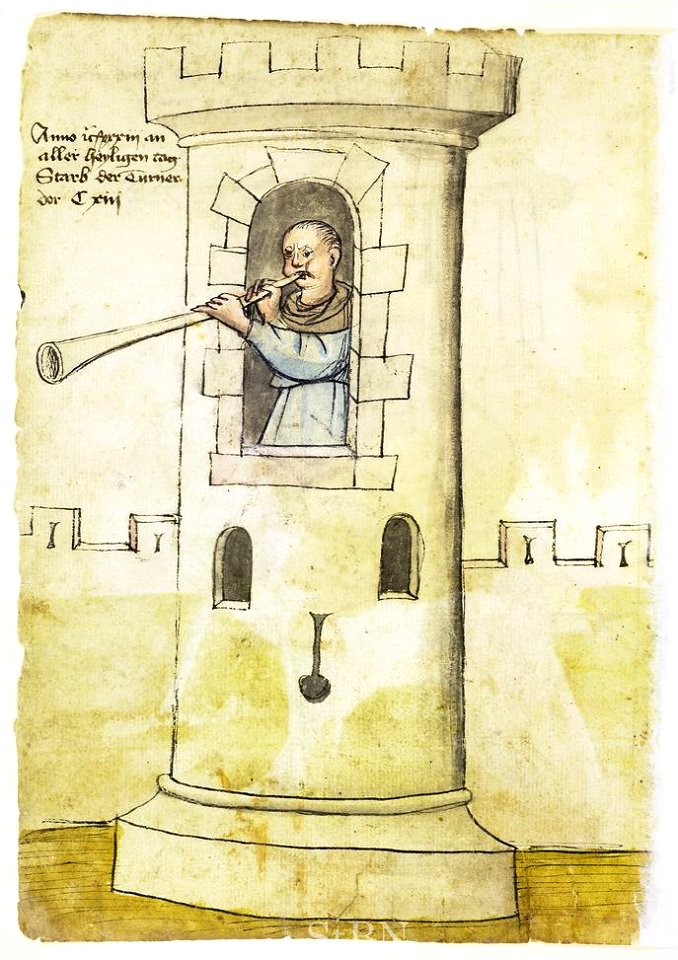 Anno an
aller heyligen tag
Starb der Turner
der C xiij
StBN